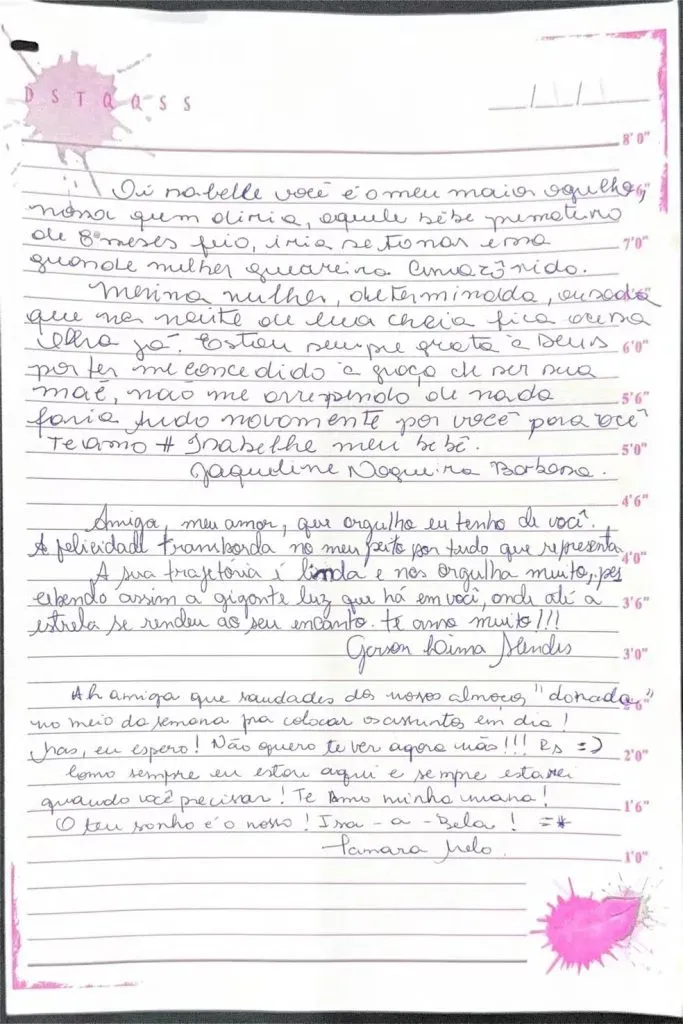 D S T Q Q S S
__/__/__
8'0"
Oi nabelle você é o meu maior ogulho,
nossa quem diria, aquele bêbe prematuro
de 8º meses feio, iria se tornar essa
7'0"
grande mulher guareira Amazônida.
Menina mulher, determinada, ousada
que na noite de lua cheia fica
6'0"
Estou sempre grata à Deus
por ter me concedido a graça de ser sua
maê, não me arrependo de nada
5'6"
faria tudo novamente por você para você
Te amo # Isabelhe meu bebê.
5'0"
Jaqueline Nogueira Barbosa.
4'6"
Amiga, meu amor, que orgulho eu tenho de você.
A felicidade transborda no meu peito por tudo que representa
4'0"
A sua trajetória é linda e nos orgulha muito, per
cebendo assim a gigante luz que há em você, onde até a
3'6"
estrela se rendeu ao seu encanto. Te amo muito!!!
Gerson Mendes
3'0"
Ah amiga que saudades dos nossos almoços "donada"
no meio da semana pra colocar os assuntos em dia!
Mas, eu espero! Não quero te ver agora não!!! Rs =)
2'0"
Como sempre eu estou aqui e sempre estarei
quando você precisar! Te Amo minha mana!
1'6"
O teu sonho é o nosso! Isa - a - Bela! =*
Tamara Melo.
1'0"